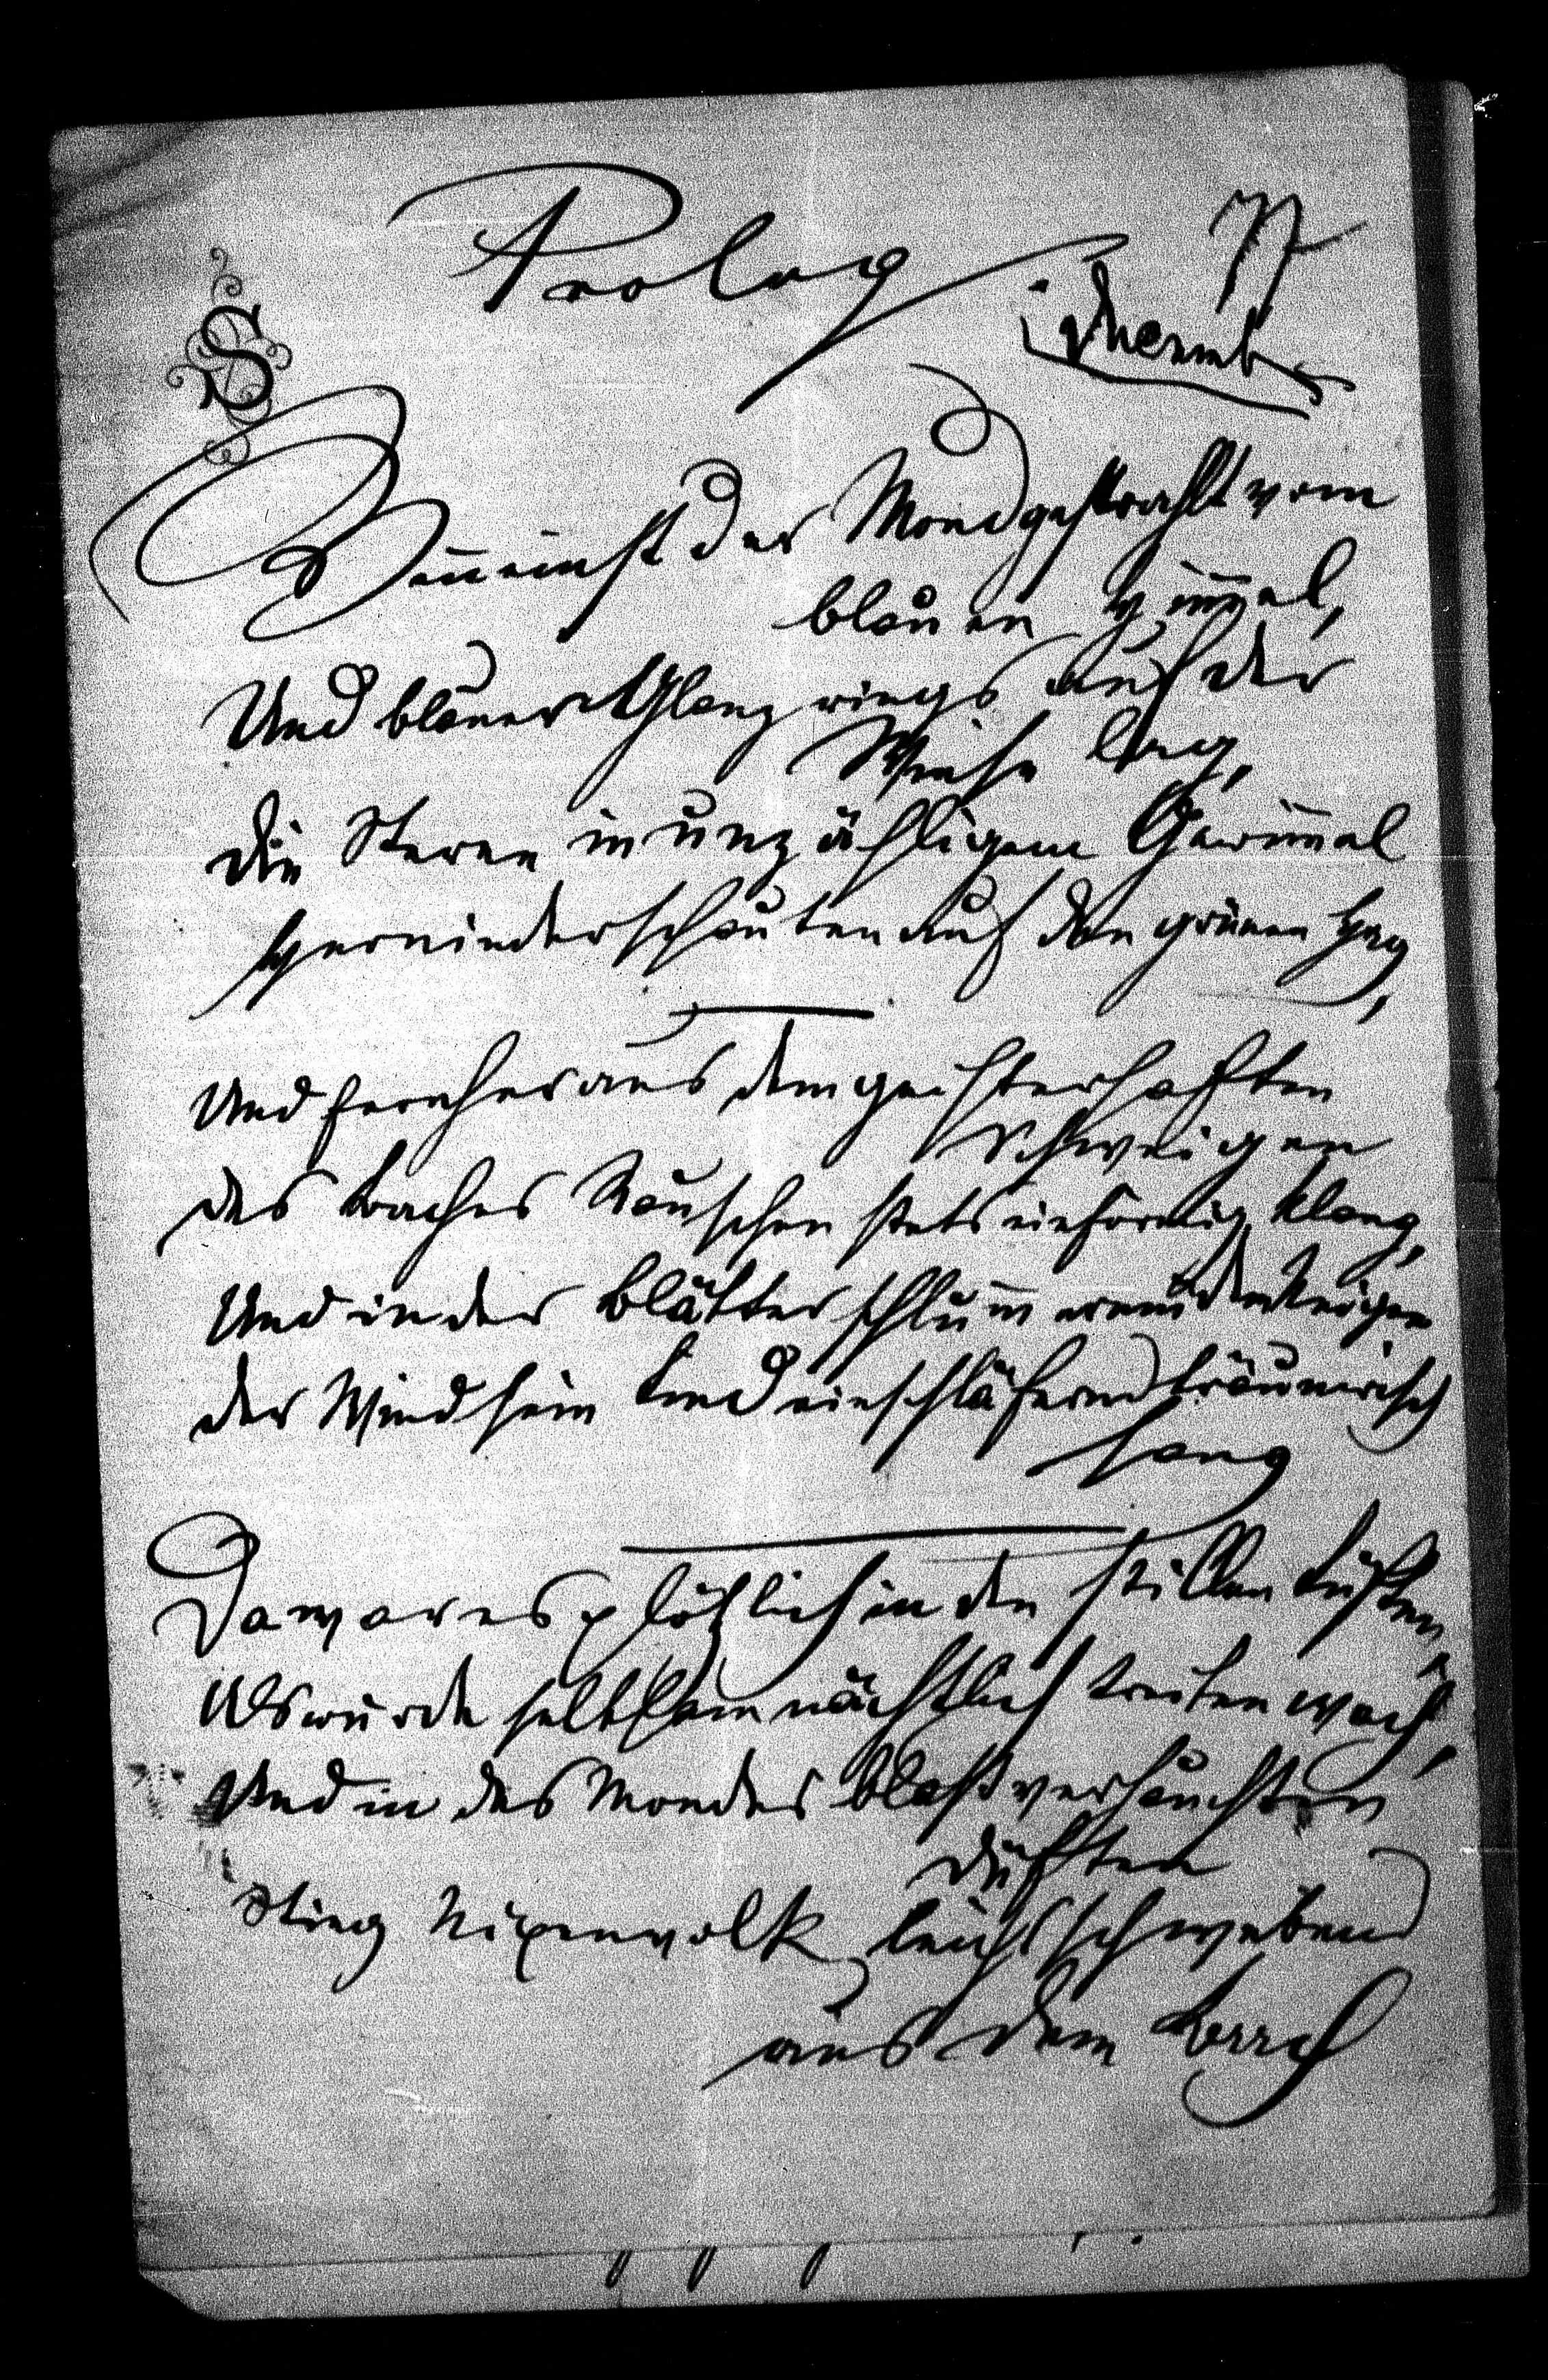 Prolog
77
Decemb
S
Wenn einst der Mond gestrahlt vom
blauen Himmel,
Und blauer Glanz rings auf der
Wiese lag,
Die Sterne in unzähligem Gewimmel
Herniederschauten auf den grünen Hag,
Und fernher aus dem geisterhaften
Schweigen
Des Baches Rauschen stets einförmig klang,
Und in der Blätter schlum̄ern den Reigen
Der Wind sein Lied einschläfernd träumerisch
sang
Da war es plötzlich in den stillen Lüften,
Als würde seltsam nächtlich Treiben wach,
Und in des Mondes blaß verhauchten
Düften
Stieg Nixenvolk leicht schwebend
aus dem Bach